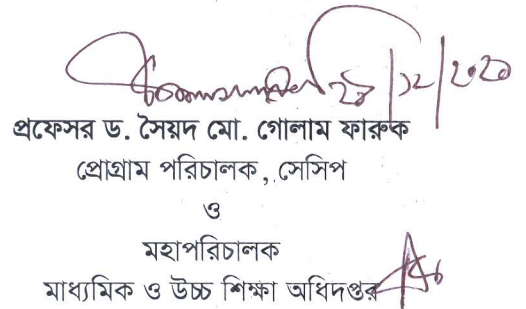 ২৪/১২/২০২০
প্রফেসর ড. সৈয়দ মো. গোলাম ফারুক
প্রোগ্রাম পরিচালক, সেসিপ
ও
মহাপরিচালক
মাধ্যমিক ও উচ্চ শিক্ষা অধিদপ্তর